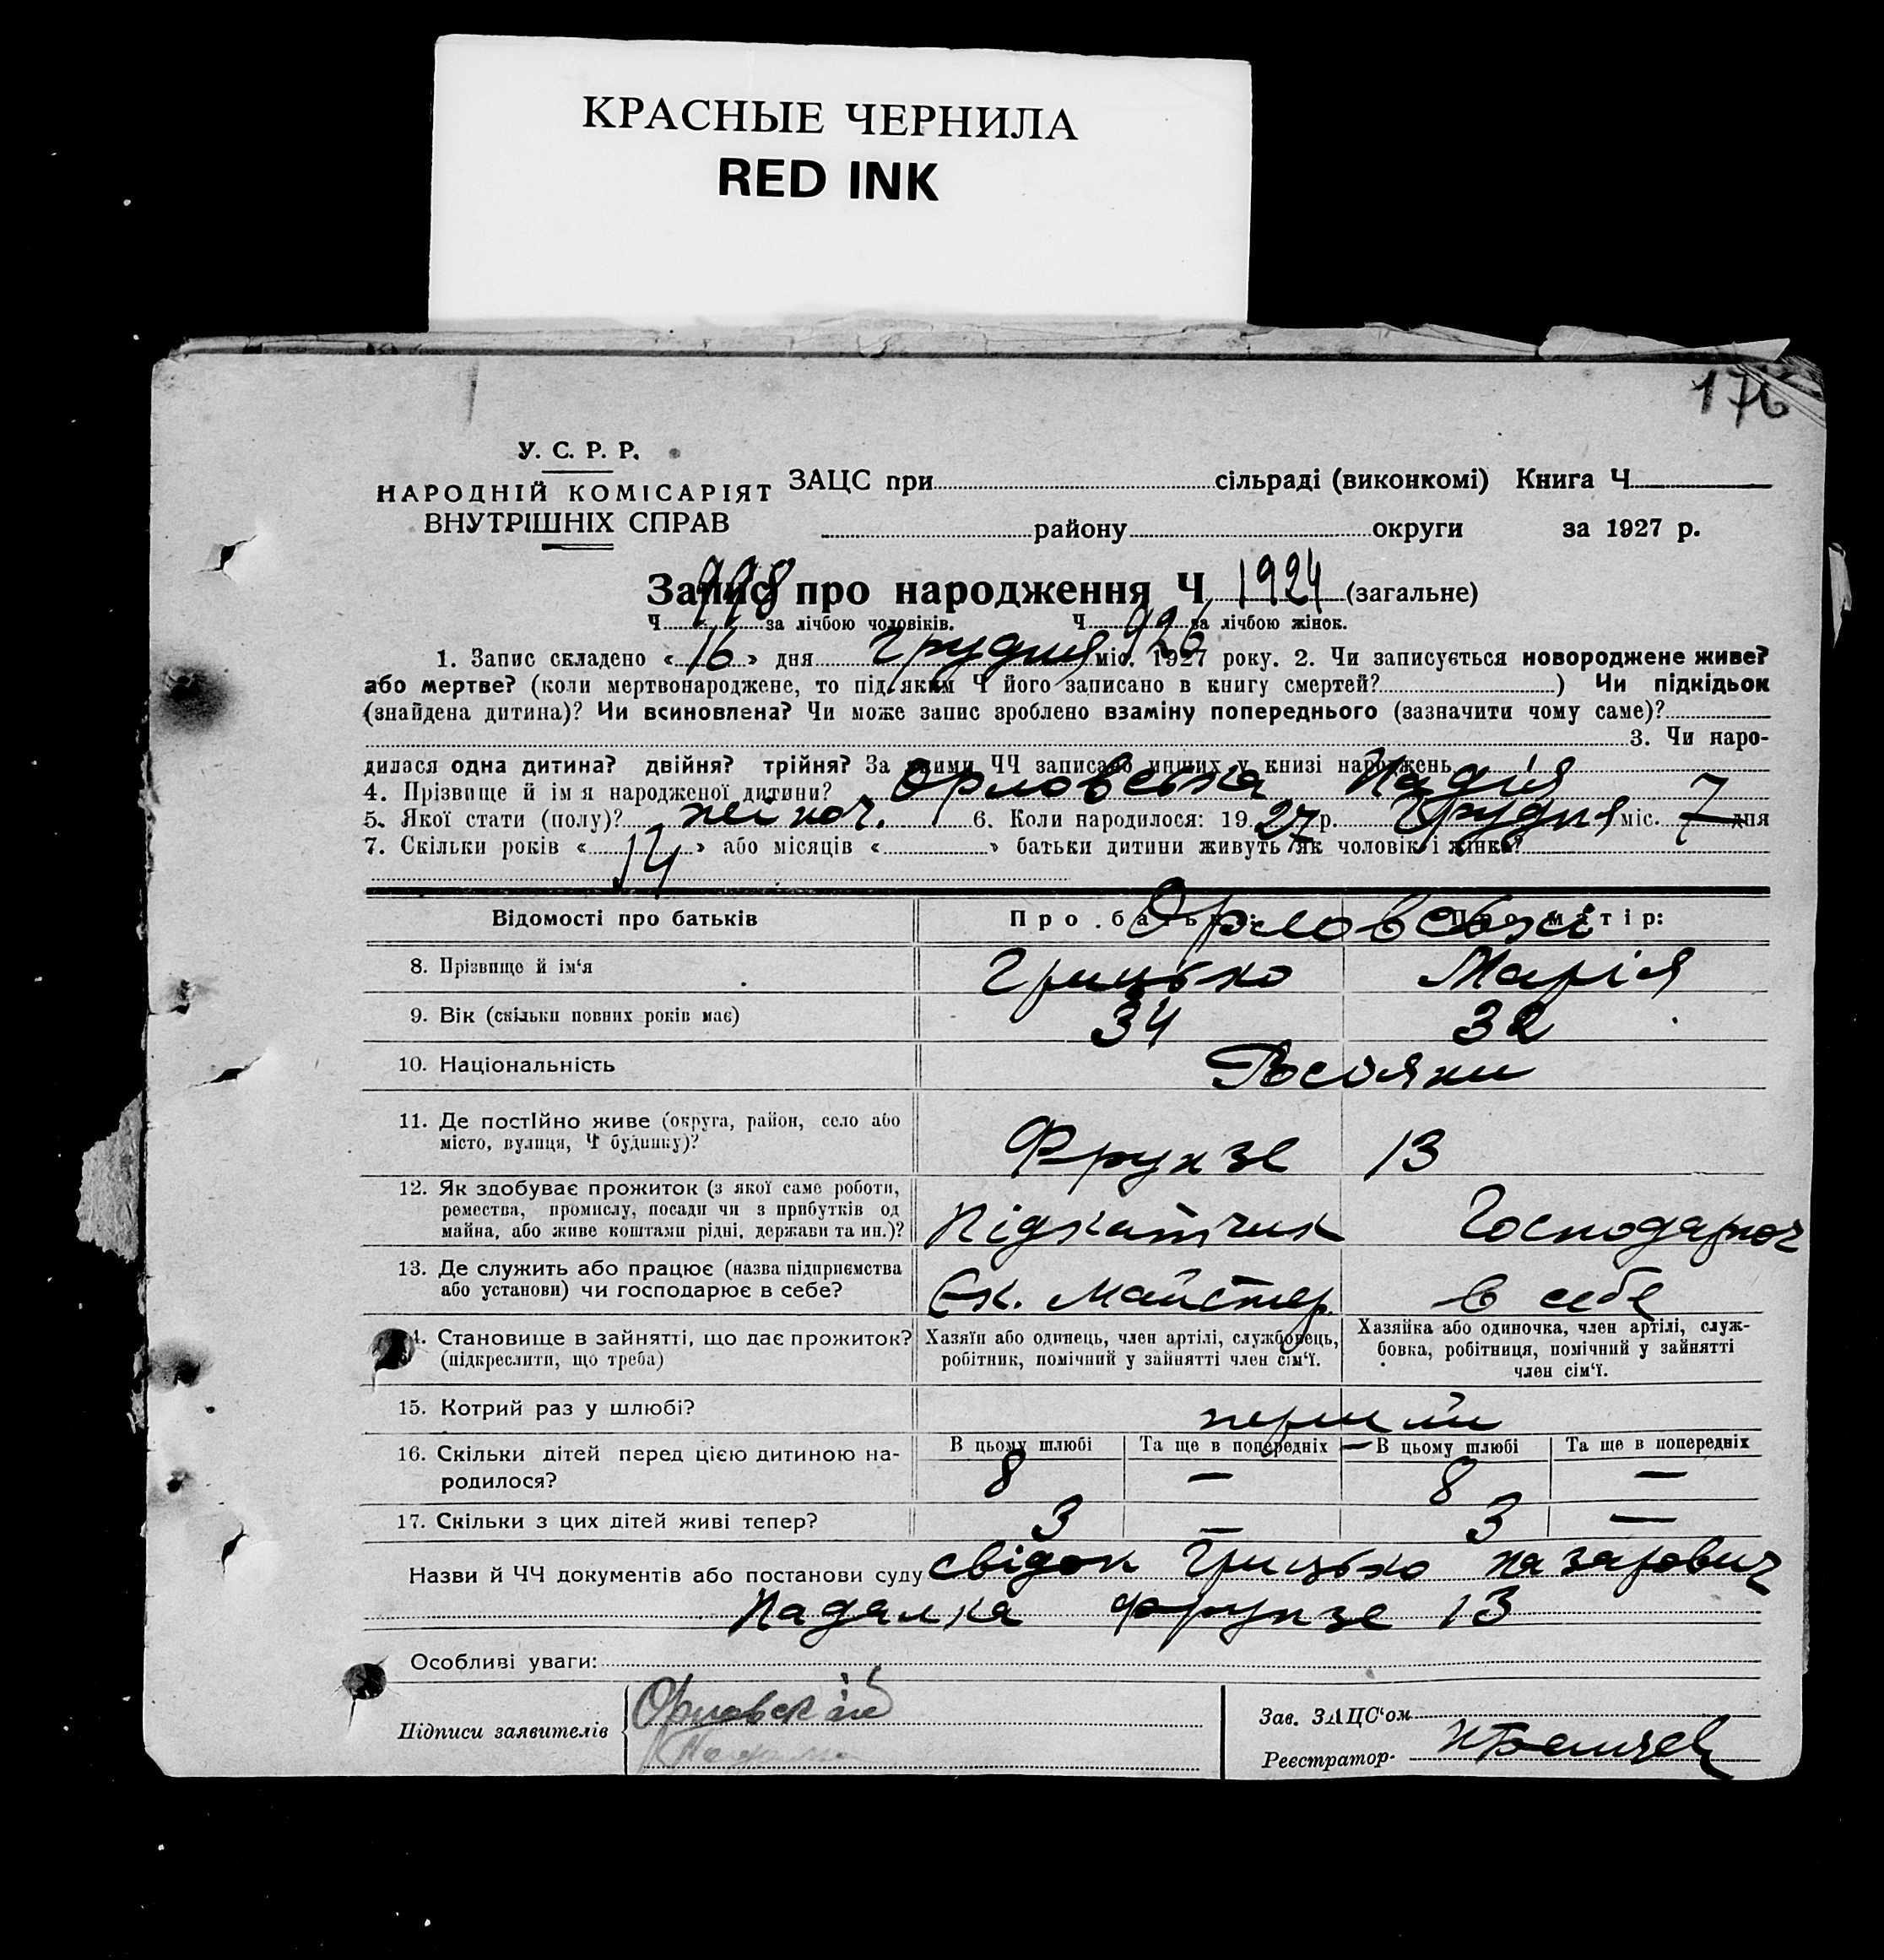 КРАСНЫЕ ЧЕРНИЛА
RED INK
176
У. С. Р. Р.
НАРОДНІЙ КОМІСАРІЯТ
ВНУТРІШНІХ СПРАВ
ЗАЦС при сільраді (виконкомі) Книга Ч
району округи за 1927 р.
Запис про народження Ч 1924 (загальне)
Ч 998 за лічбою чоловіків. Ч 926 за лічбою жінок.
1. Запис складено « 16 » дня Грудня міс. 1927 року. 2. Чи записується новороджене живе?
або мертве? (коли мертвонароджене, то під яким Ч його записано в книгу смертей? ) Чи підкідьок
(знайдена дитина)? Чи всиновлена? Чи може запис зроблено взаміну попереднього (зазначити чому саме)?
3. Чи наро-
дилася одна дитина? двійня? трійня? За якими ЧЧ записано инших у книзі народжень
4. Прізвище й імя народженої дитини? Орловська Надія
5. Якої стати (полу)? жіноч. 6. Коли народилося: 1927 р. Грудня міс. 7 дня
7. Скільки років « 14 » або місяців « » батьки дитини живуть як чоловік і жінка?
Відомості про батьків Про батька: Про матір:
Орловські
8. Прізвище й ім‘я Грицько Марія
9. Вік (скільки повних років має) 34 32
10. Національність Росіяни
11. Де постійно живе (округа, район, село або
місто, вулиця, Ч будинку)? Фрунзе 13
12. Як здобуває прожиток (з якої саме роботи,
ремества, промислу, посади чи з прибутків од
майна, або живе коштами рідні, держави та ин.)? Підкатчик Господарюч
13. Де служить або працює (назва підприємства
або установи) чи господарює в себе? Ек. майстер. в себе
14. Становище в зайнятті, що дає прожиток?
(підкреслити, що треба)
Хазяїн або одинець, член артілі, службовець,
робітник, помічний у зайнятті член сім‘ї.
Хазяйка або одиночка, член артілі, служ-
бовка, робітниця, помічний у зайнятті
член сім‘ї.
15. Котрий раз у шлюбі? перший
16. Скільки дітей перед цією дитиною на-
родилося?
В цьому шлюбі Та ще в попередніх В цьому шлюбі Та ще в попередніх
8 — 8 —
17. Скільки з цих дітей живі тепер? 3 — 3 —
Назви й ЧЧ документів або постанови суду свідок Грицько Назарович
Падалка Фрунзе 13
Особливі уваги:
Підписи заявителів Орловский
Зав. ЗАЦС‘ом
Реєстратор